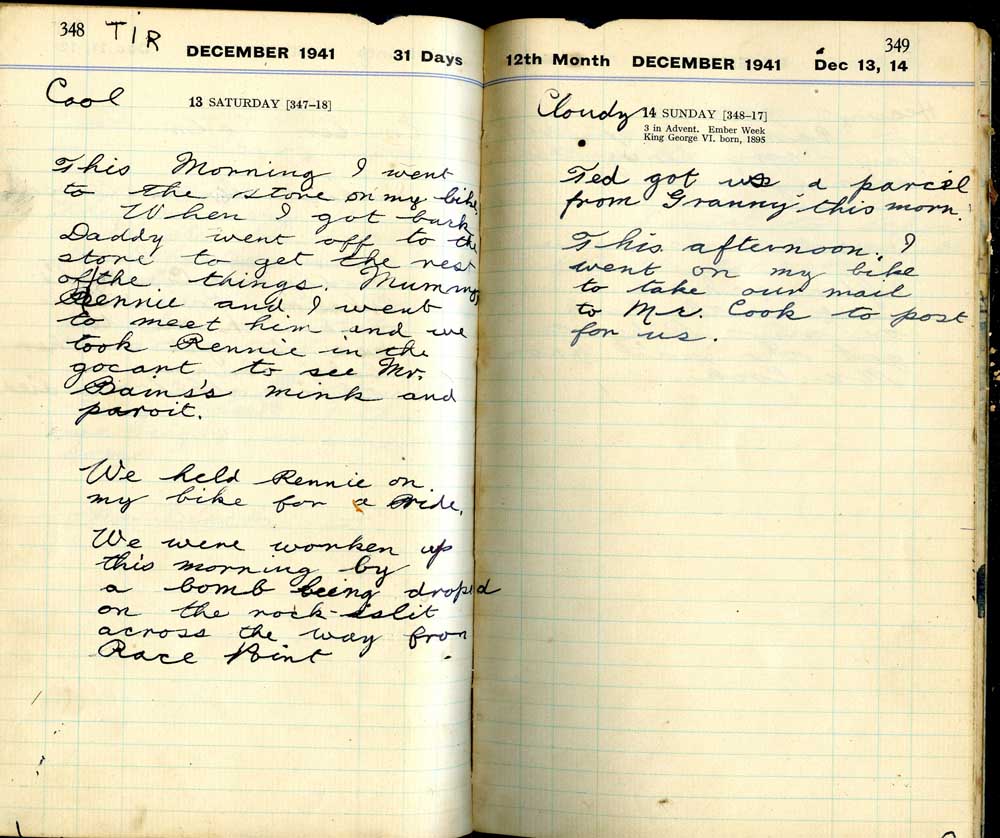 348 TIR
DECEMBER 1941 31 Days
Cool
13 SATURDAY [347-18]
This Morning I went
to the store on my bike.
When I got back
Daddy went off to the
store to get the rest
of the things. Mummy,
Rennie and I went
to meet him and we
took Rennie in the
gocart to see Mr.
Bains's mink and
paroit.
We held Rennie on
my bike for a ride.
We were worken up
this morning by
a bomb being droped
on the rock-islit
across the way from
Race Point
349
12th Month DECEMBER 1941 Dec 13, 14
Cloudy
14 SUNDAY [348-17]
3 in Advent. Ember Week
King George VI. born, 1895
Ted got us a parcel
from Granny this morn.
This afternoon. I
went on my bike
to take our mail
to Mr. Cook to post
for us.